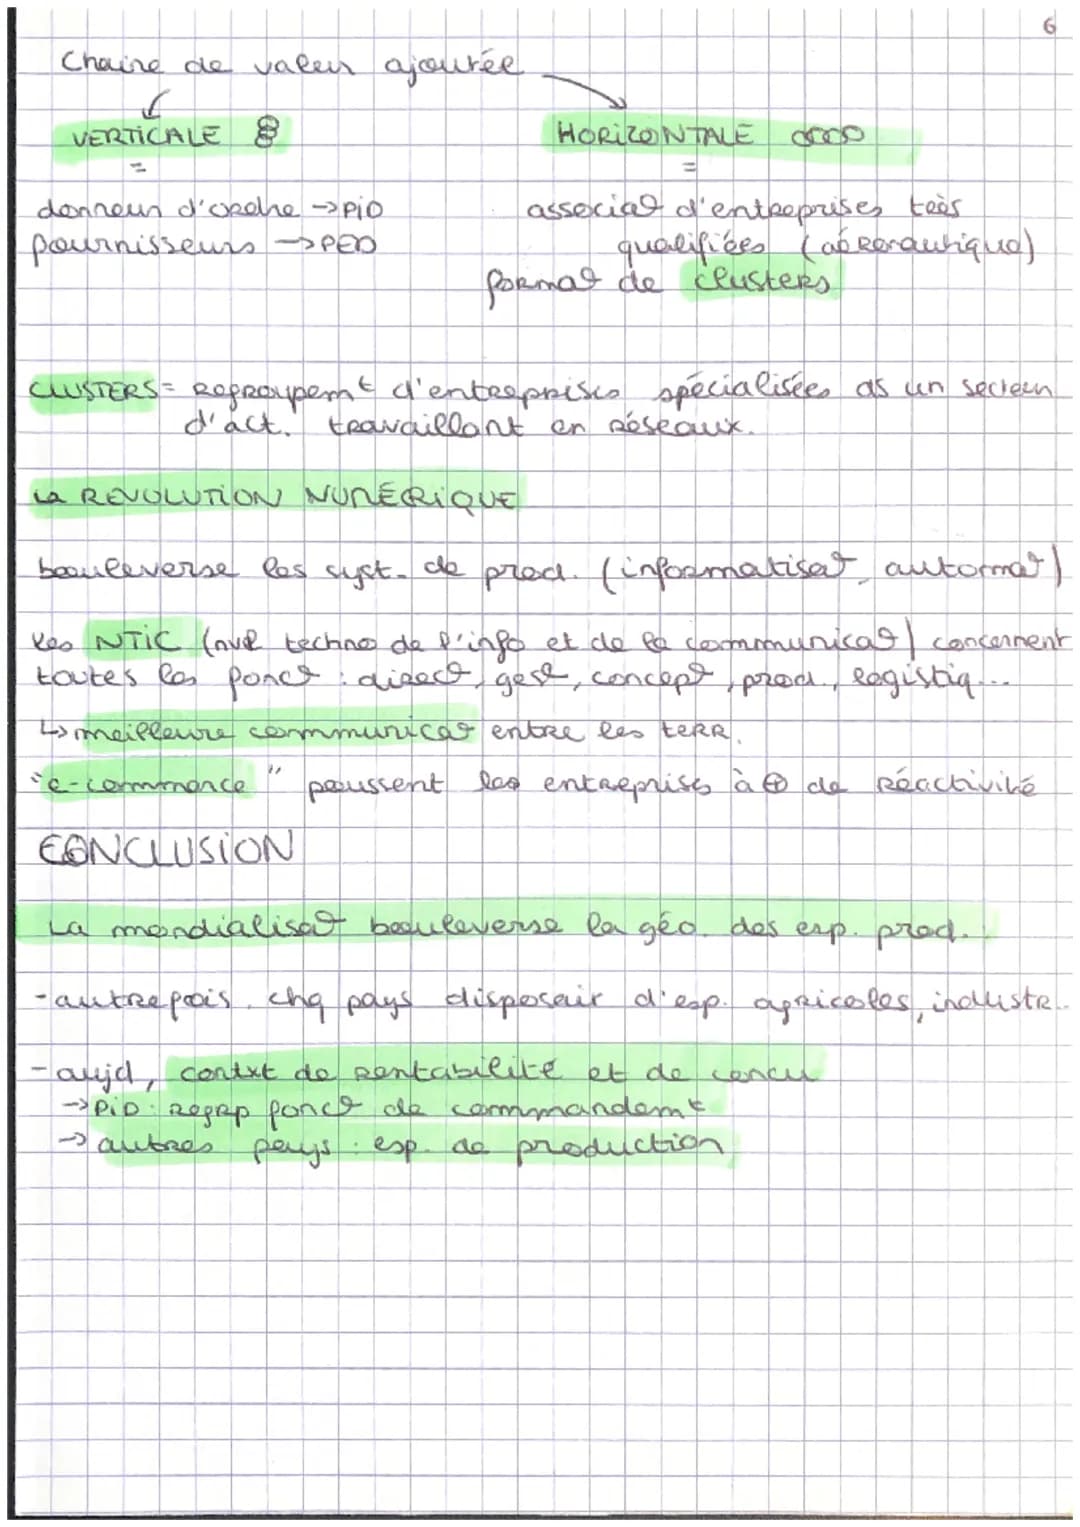 6
Chaine de valeur ajoutée
VERTICALE
HORIZONTALE
= =
donneur d'ordre → PID
associat° d'entreprises très
fournisseurs → PED
qualifiées (aéronautique)
format° de clusters
CLUSTERS = Regroupemt d'entreprises spécialisées ds un secteur
d'act. travaillant en réseaux.
La REVOLUTION NUMÉRIQUE
bouleverse les syst. de prod. (informatisat°, automat°)
Les NTIC (nvl techno de l'info et de la communicat°) concernent
toutes les fonct° : direct°, gest°, concept°, prod., logistiq...
↳ meilleure communicat° entre les terr.
"e-commerce" poussent les entreprises à ⊕ de Réactivité
CONCLUSION
La mondialisat° bouleverse la géo. des esp. prod.
- autrefois, chq pays disposait d'esp. agricoles, industr..
- aujd, contxt de rentabilité et de concu
→ PID : regrp fonct° de commandemt
→ autres pays : esp. de production